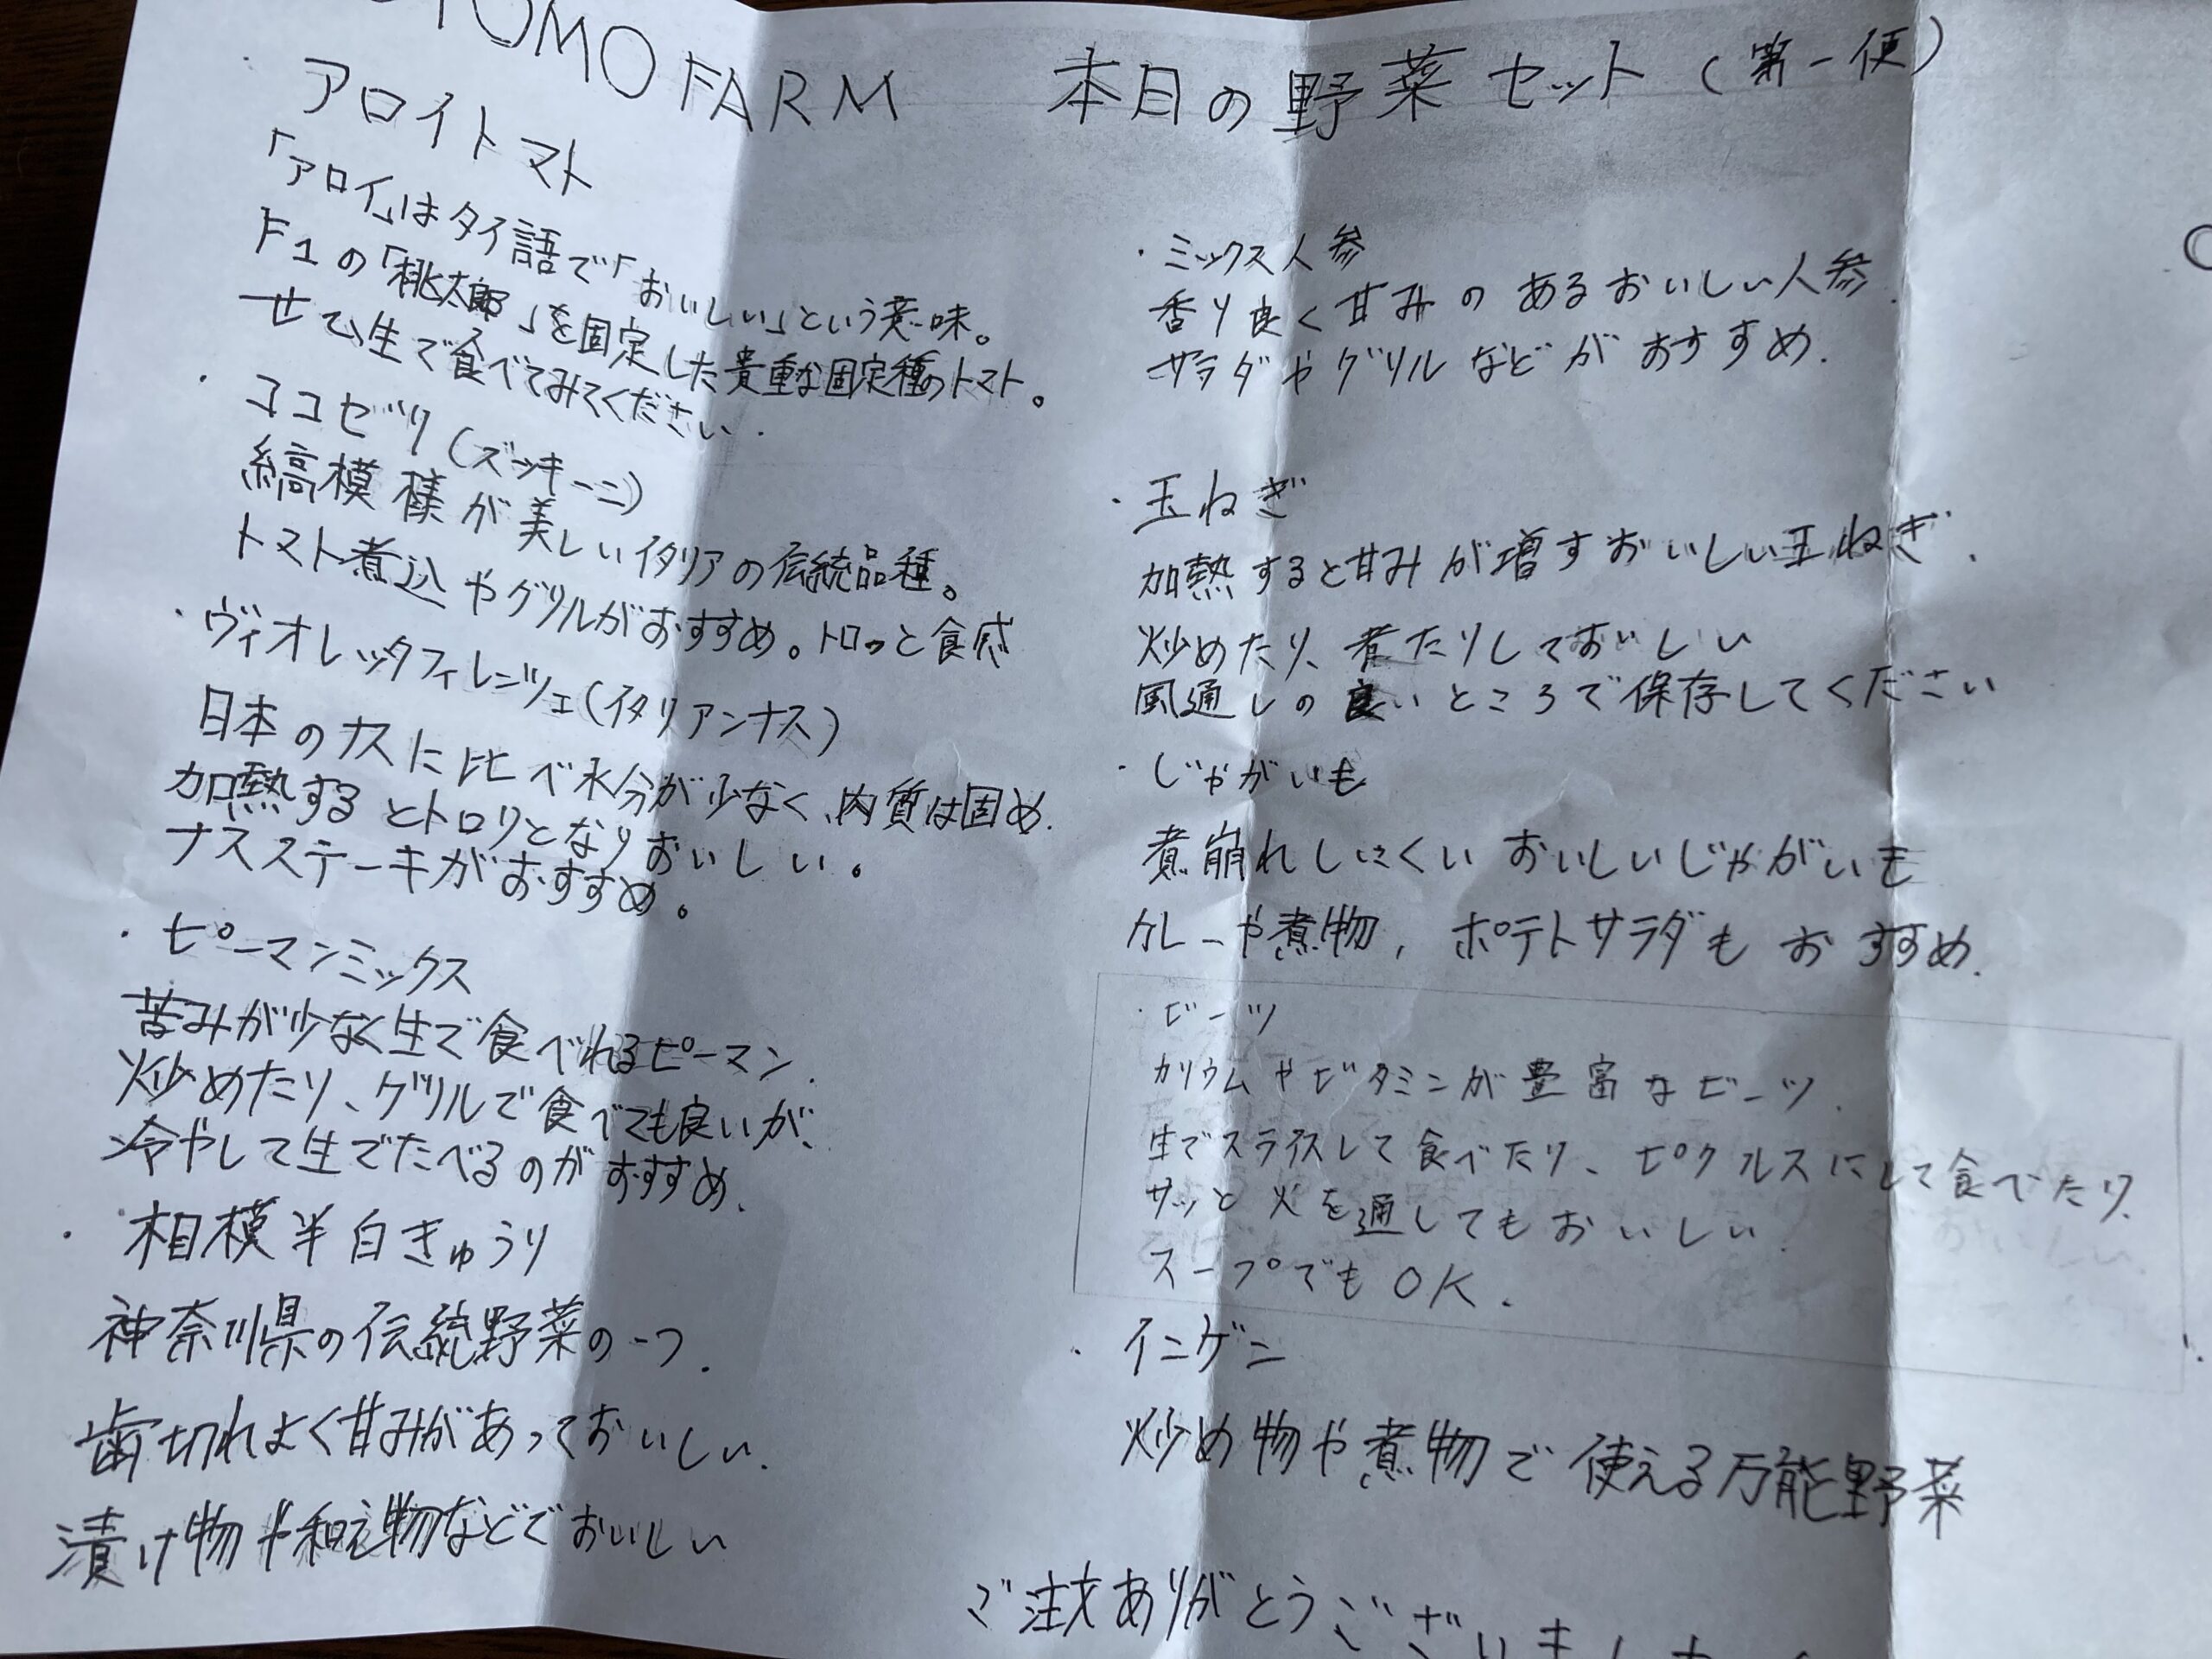 TOMO FARM 本日の野菜セット(第一便)
・アロイトマト
「アロイ」はタイ語で「おいしい」という意味。
F1の「桃太郎」を固定した貴重な固定種のトマト。
ぜひ生で食べてみてください.
・ココゼリ(ズッキーニ)
縞模様が美しいイタリアの伝統品種。
トマト煮込やグリルがおすすめ。トロッと食感
・ヴィオレッタフィレンツェ(イタリアンナス)
日本のナスに比べ水分が少なく、肉質は固め.
加熱するとトロリとなりおいしい。
ナスステーキがおすすめ。
・ピーマンミックス
苦みが少なく生で食べれるピーマン.
炒めたり、グリルで食べても良いが、
冷やして生でたべるのがおすすめ.
・相模半白きゅうり
神奈川県の伝統野菜の一つ.
歯切れよく甘みがあっておいしい.
漬け物や和え物などでおいしい
・ミックス人参
香り良く甘みのあるおいしい人参.
サラダやグリルなどがおすすめ.
・玉ねぎ
加熱すると甘みが増すおいしい玉ねぎ.
炒めたり、煮たりしておいしい
風通しの良いところで保存してください
・じゃがいも
煮崩れしにくいおいしいじゃがいも
カレーや煮物,ポテトサラダもおすすめ.
・ビーツ
カリウムやビタミンが豊富なビーツ.
生でスライスして食べたり、ピクルスにして食べたり、
サッと火を通してもおいしい.
スープでもOK.
・インゲン
炒め物や煮物で使える万能野菜
ご注文ありがとうございました